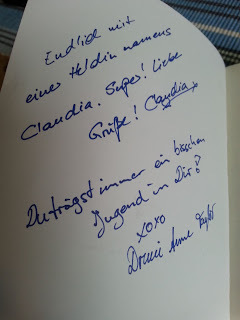 Endlich mit
einer Heldin namens
Claudia. Super! Liebe
Grüße! Claudia
Du trägst immer ein bisschen
Jugend in Dir!
xoxo
Anne